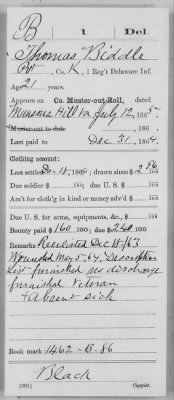 B | 1 | Del.
Thomas Biddle
Pvt, Co. K, 1 Reg't Delaware Inf.
Age 21 years.
Appears on Co. Muster-out Roll, dated
Munsons Hill Va July 12, 1865.
Muster-out to date , 186 .
Last paid to Dec 31, 1864.
Clothing account:
Last settled Dec 18, 1864; drawn since $ 2 86
Due soldier $ 100; due U. S. $ 100
Am't for cloth'g in kind or money adv'd $ 100
Due U. S. for arms, equipments, &c., $ 100
Bounty paid $ 160 100; due $ 240 100
Remarks: Reenlisted Dec 18/63
Wounded May 5-64, Descriptive
List furnished no discharge
furnished Veteran
+ Absent sick
Book mark: 1462-B-86
Black
(361) Copyist.